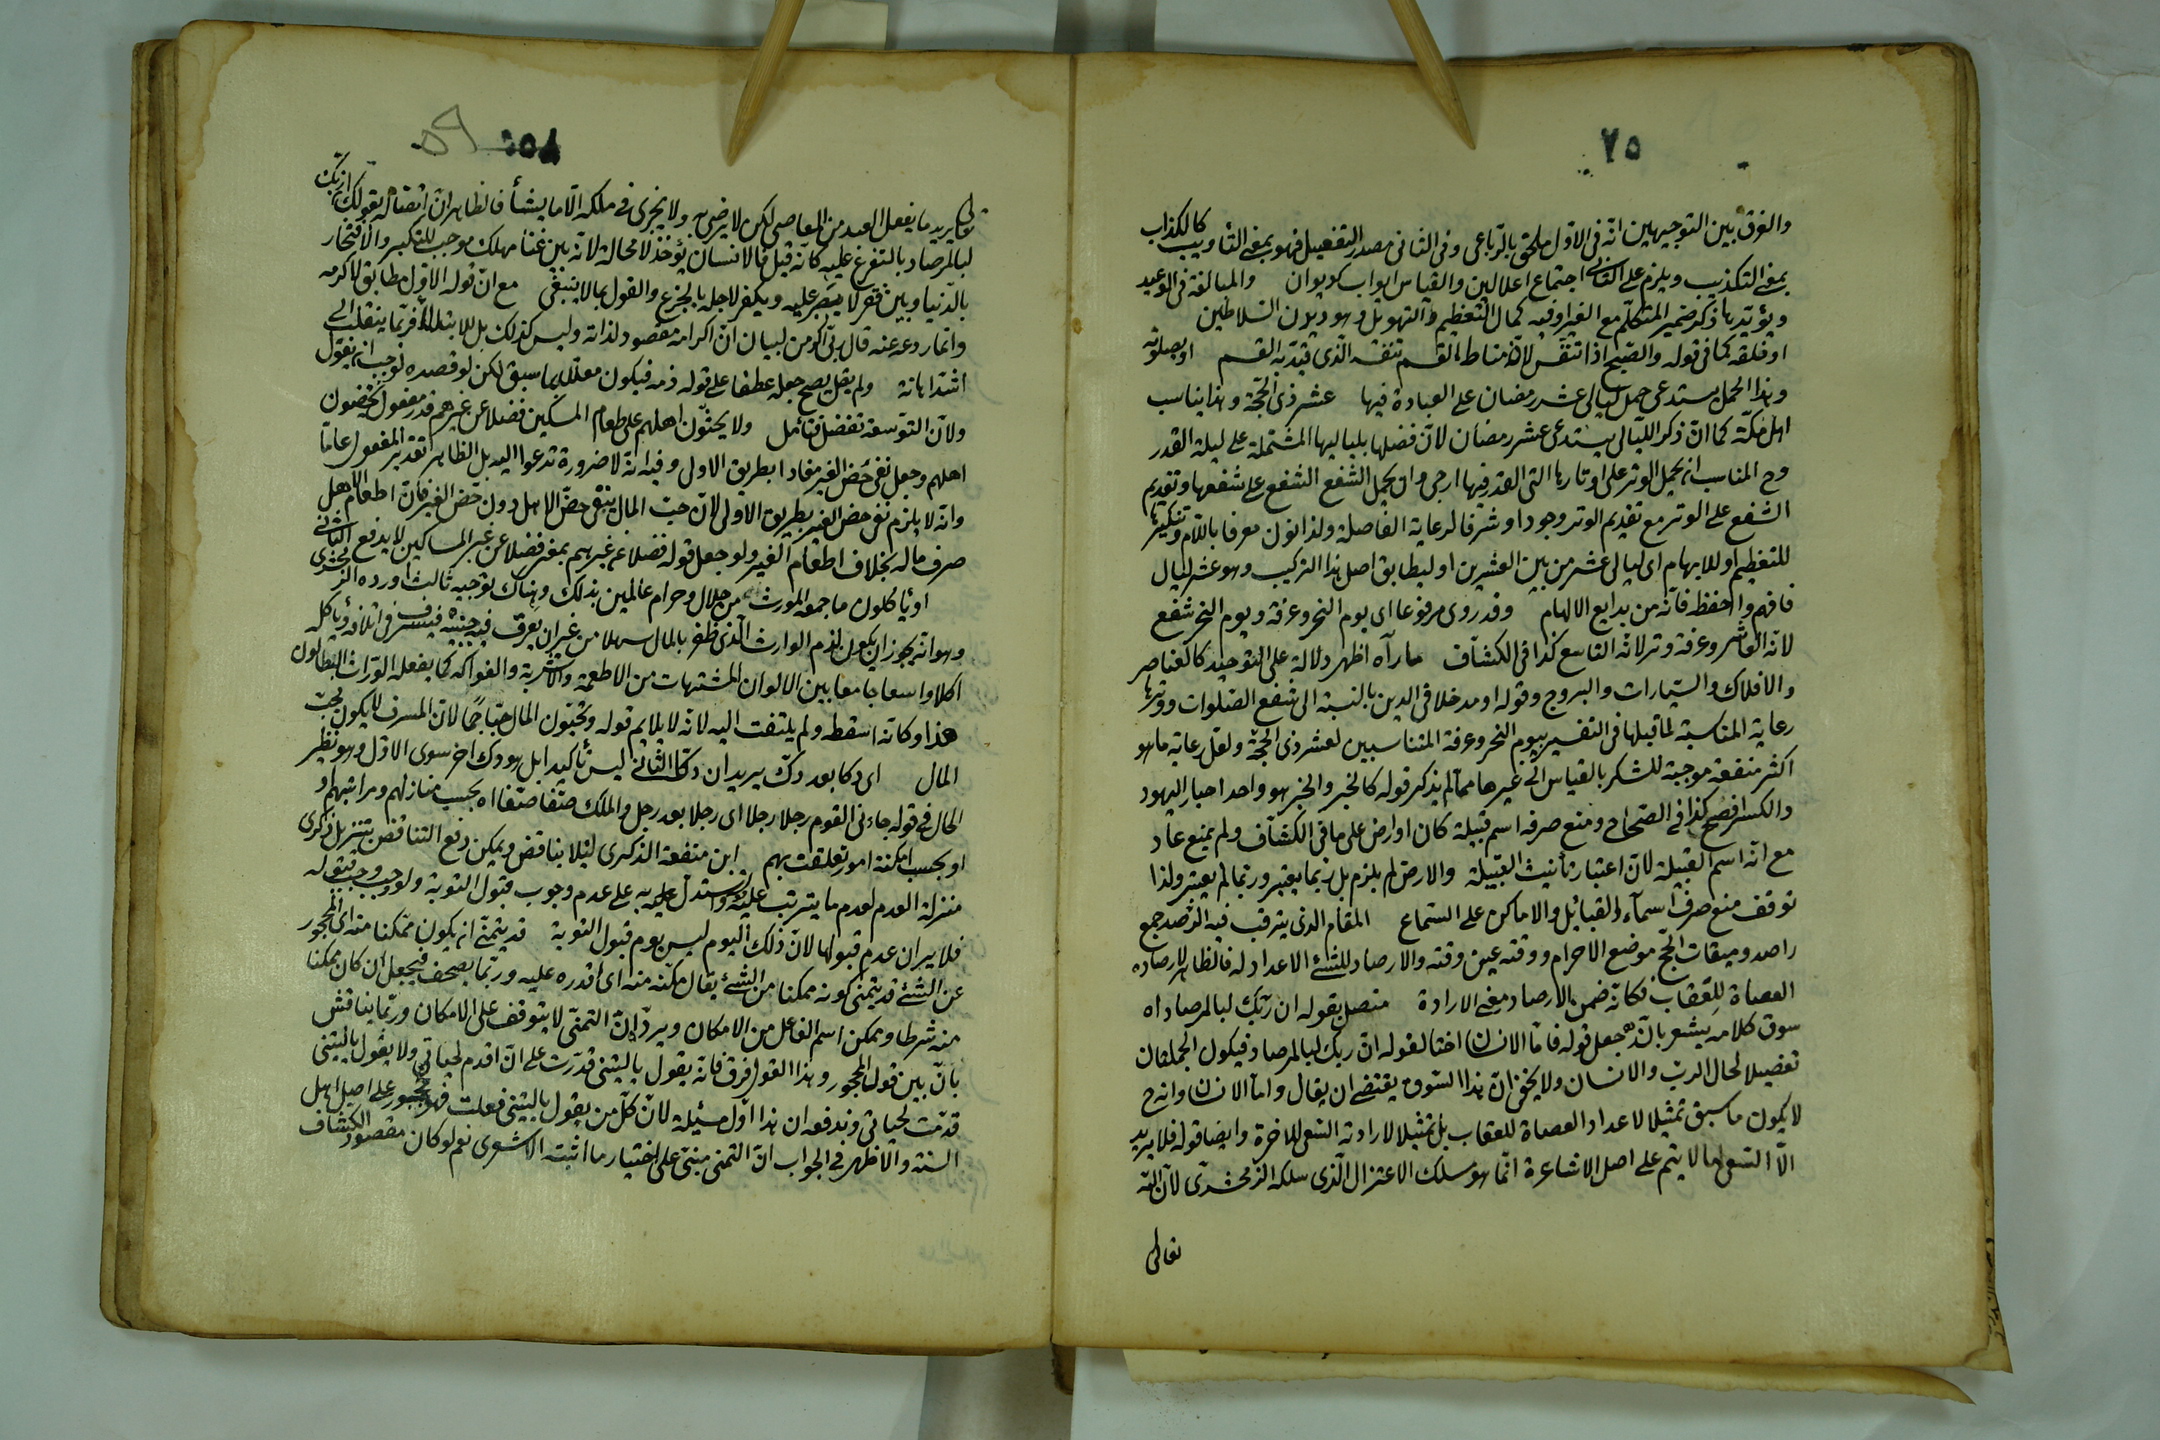 ٥٧
والفرق بين التوجيهين انه فى الاول ملحق بالرباعى وفى الثانى مصدر التفعيل فهو بمعنى التأويب كالكذاب
بمعنى التكذيب ويلزم على الثانى اجتماع اعلالين والقياس ايواب كديوان والمبالغة فى الوعيد
ويؤيدها ذكر ضمير المتكلم مع الغير وفيه كمال التعظيم والتهويل وهو ديدن السلاطين
او فلقه كما فى قوله والصبح اذا تنفس لان مناط القسم تنفسه الذى قيد به القسم او بصلوته
وهذا الحمل يستدعى حمل ليالى عشر رمضان على العبادة فيها عشر ذى الحجة وهذا يناسب
اهل مكة كما ان ذكر الليالى يستدعى عشر رمضان لان فضلها بلياليها المشتملة على ليلة القدر
وح المناسب ان يحمل الوتر على اوتارها التى القدر فيها ارجى وان يحمل الشفع الشفع على شفعها وتقديم
الشفع على الوتر مع تقديم الوتر وجودا وشرفا لرعاية الفاصلة ولذا نون معرفا باللام وتنكيرها
للتعظيم او للابهام اى ليالى عشر من بين العشرين او ليطابق اصل هذا التركيب وهو عشر ليال
فافهم واحفظه فانه من بدايع الالهام وقد روى مرفوعا اى يوم النحر وعرفة ويوم النحر شفع
لانه العاشر وعرفة وتر لانه التاسع كذا فى الكشاف ما رآه اظهر دلالة على التوحيد كالعناصر
والافلاك والسيارات والبروج وقوله او مدخلا فى الدين بالنسبة الى شفع الصلوات ووترها
رعاية المناسبة لما قبلها فى التفسير بيوم النحر وعرفة المتناسبين لعشر ذى الحجة ولعل رعاية ما هو
اكثر منفعة موجبة للشكر بالقياس الى غيرها مما لم يذكر قوله كالخبر والحبر هو واحد احبار اليهود
والكسر افصح كذا فى الصحاح ومنع صرفه اسم قبيلة كان او ارض على ما فى الكشاف ولم يمنع عاد
مع انه اسم القبيلة لان اعتبار تأنيث القبيلة والارض لم يلزم بل ربما يعتبر وربما لم يعتبر ولذا
توقف منع صرف اسماء القبائل والاماكن على السماع المقام الذى يترقب فيه الرصد جمع
راصد وميقات الحج موضع الاحرام ووقته عين وقته والارصاد للشئ الاعداد له فالظاهر لارصاده
العصاة للعقاب فكانه ضمن الارصاد معنى الارادة متصل بقوله ان ربك لبالمرصاد اه
سوق كلامه يشعر بانه جعل قوله فاما الانسان اختا لقوله ان ربك لبالمرصاد فيكون الجملتان
تفصيلا لحال الرب والانسان ولا يخفى ان هذا السوق يقتضى ان يقال واما الانسان وانه ح
لا يكون ما سبق تمثيلا لاعداد العصاة للعقاب بل تمثيلا لارادته السعى للاخرة وايضا قوله فلا يريد
الا السعى لها لا يتم على اصل الاشاعرة انما هو سلك الاعتزال الذى سلكه الزمخشرى لان الله
تعالى
٥٨
تعالى يريد ما يفعل العبد من المعاصى لكن لا يرضى به ولا يجرى فى ملكه الا ما يشأ فالظاهر ان اتصاله بقوله ان ربك
لبالمرصاد بالتفرغ عليه كانه قيل فالانسان يؤخذ لا محالة لانه بين غنا مهلك موجب للتكبر والافتخار
بالدنيا وبين فقر لا يصبر عليه ويكفر لاجله بالجزع والقول بما لا ينبغى مع ان قوله الاول مطابق لاكرمه
وانما ردعه عنه قال ربى اكرمن لبيان ان اكرامه مقصود لذاته وليس كذلك بل للابتلاء فربما ينقلب الى
اشد اهانة ولم يقل يصح جعله عطفا على قوله ذمه فيكون معللا بما سبق لكن لو قصده لوجب ان يقول
ولان التوسعة تفضل فتأمل ولا يحثون اهلهم على طعام المسكين فضلا عن غيرهم قدر مفعول يحضون
اهلهم وجعل نفى حض الغير مفادا بطريق الاولى وفيه انه لا ضرورة تدعوا اليه بل الظاهر تقدير المفعول عاما
وانه لا يلزم نفى حض الغير بطريق الاولى لان حب المال ينفى حض الاهل دون حض الغير فان اطعام الاهل
صرف ماله بخلاف اطعام الغير ولو جعل قوله فضلا عن غيرهم بمعنى فضلا عن غير المساكين لا يدفع الثانى
او يأكلون ما جمعه المورث من حلال وحرام عالمين بذلك وهناك توجيه ثالث اورده الزمخشرى
وهو انه يجوز ان يكون لذم الوارث الذى ظفر بالمال سهلا من غير ان يعرق فيه جبينه فيسرف فى اتلافه ويأكله
اكلا واسعا جامعا بين الالوان المشتهات من الاطعمة والاشربة والفواكه كما يفعله الوراث البطالون
هذا وكانه اسقطه ولم يلتفت اليه لانه لا يلايم قوله وتحبون المال حبا جما لان المسرف لا يكون محب
المال اى دكا بعد دك يريد ان دكا الثانى ليس تأكيدا بل هو دك اخر سوى الاول وهو نظير
الحال فى قوله جاءنى القوم رجلا رجلا اى رجلا بعد رجل والملك صفا صفا اه بحسب منازلهم ومراتبهم و
او بحسب امكنة امور تعلقت بهم اين منفعة الذكرى لئلا يناقض ويمكن دفع التناقض بتنزيل ذكرى
منزلة العدم لعدم ما يترتب عليه واستدل به على عدم وجوب قبول التوبة ولو وجب قبوله
فلا يرى ان عدم قبولها لان ذلك اليوم ليس يوم قبول التوبة قد يتمنى ان يكون ممكنا منه اى المحجور
عن الشئ قد يتمنى كونه ممكنا من الشئ يقال مكنه منه اى اقدره عليه وربما يصحف فيجعل ان كان ممكنا
منه شرطا وممكن اسم الفاعل من الامكان ويرد ان التمنى لا يتوقف على الامكان وربما يناقش
بان بين قول المحجور وهذا القول فرق فانه يقول يا ليتنى قدرت على ان اقدم لحياتى ولا يقول يا ليتنى
قدمت لحياتى وندفعه ان هذا اول مسئلة لان كل من يقول يا ليتنى فعلت فهو محجور على اصل اهل
السنة والاظهر فى الجواب ان التمنى مبنى على اختيار ما اثبته الاشعرى نعم لو كان مقصود الكشاف